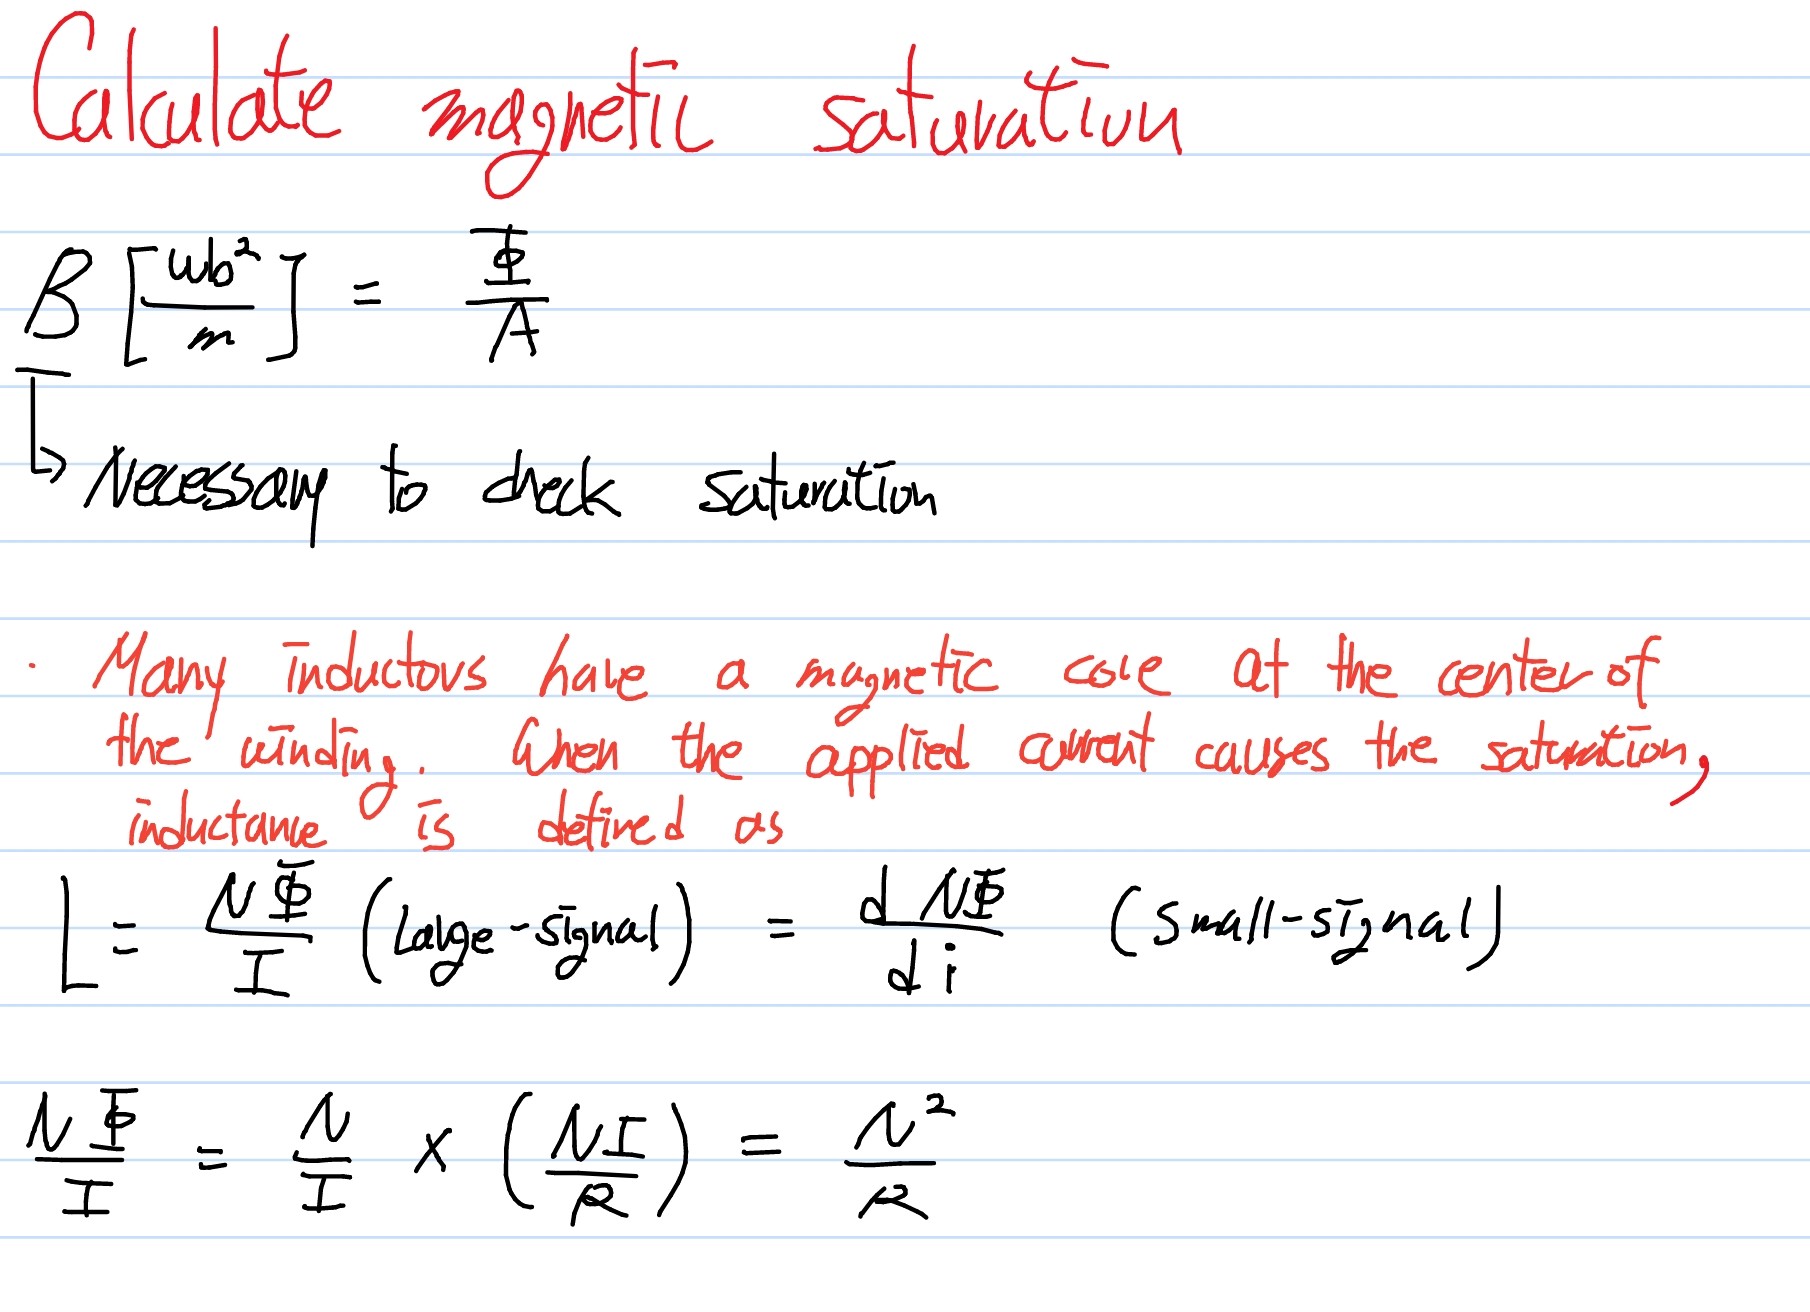 Calculate magnetic saturation
B [wb²/m] = Φ/A
↳ Necessary to check saturation
· Many inductors have a magnetic core at the center of
the winding. When the applied current causes the saturation,
inductance is defined as
L = NΦ/I (Large-signal) = d NΦ/di (small-signal)
NΦ/I = N/I × (NI/R) = N²/R